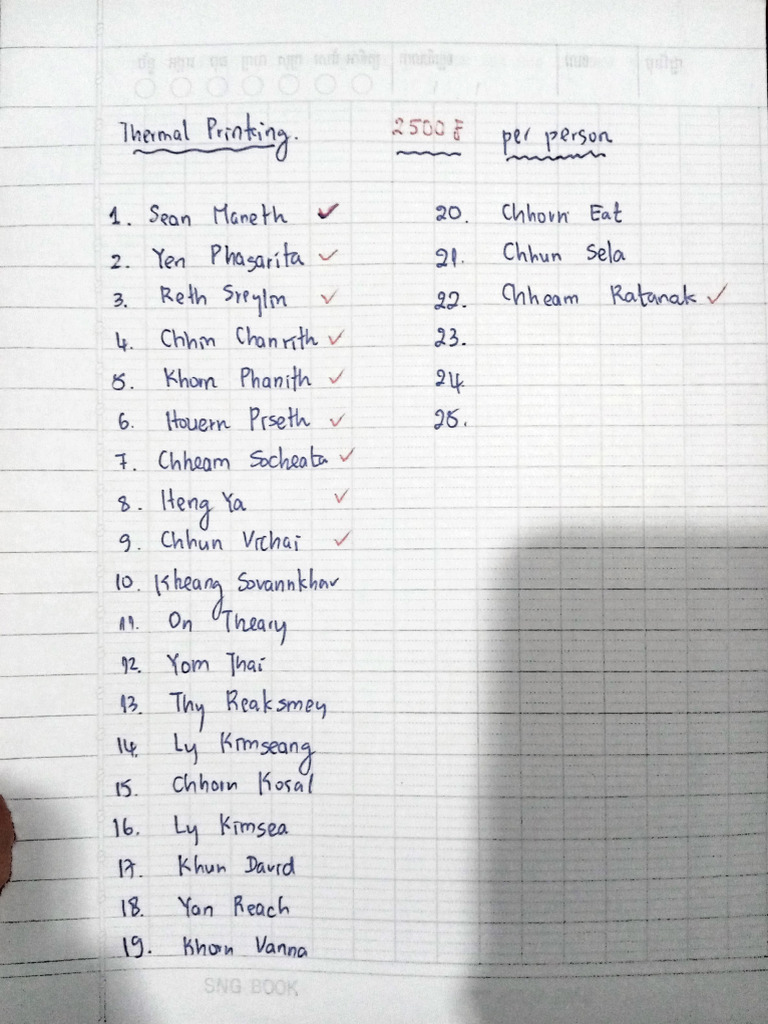 Thermal Printing. 2500៛ per person
1. Sean Maneth ✓
2. Yen Phagarita ✓
3. Reth Sreylin ✓
4. Chhin Chanrith ✓
5. Khorn Phanith ✓
6. Houern Piseth ✓
7. Chheam Socheata ✓
8. Heng Ya ✓
9. Chhun Vichai ✓
10. Kheang Sovannkhav
11. On Theary
12. Yom Thai
13. Thy Reaksmey
14. Ly Kimseang
15. Chhorn Kosal
16. Ly Kimsea
17. Khun David
18. Yan Reach
19. Khorn Vanna
20. Chhorn Eat
21. Chhun Sela
22. Chheam Ratanak ✓
23.
24
25.
SNG BOOK